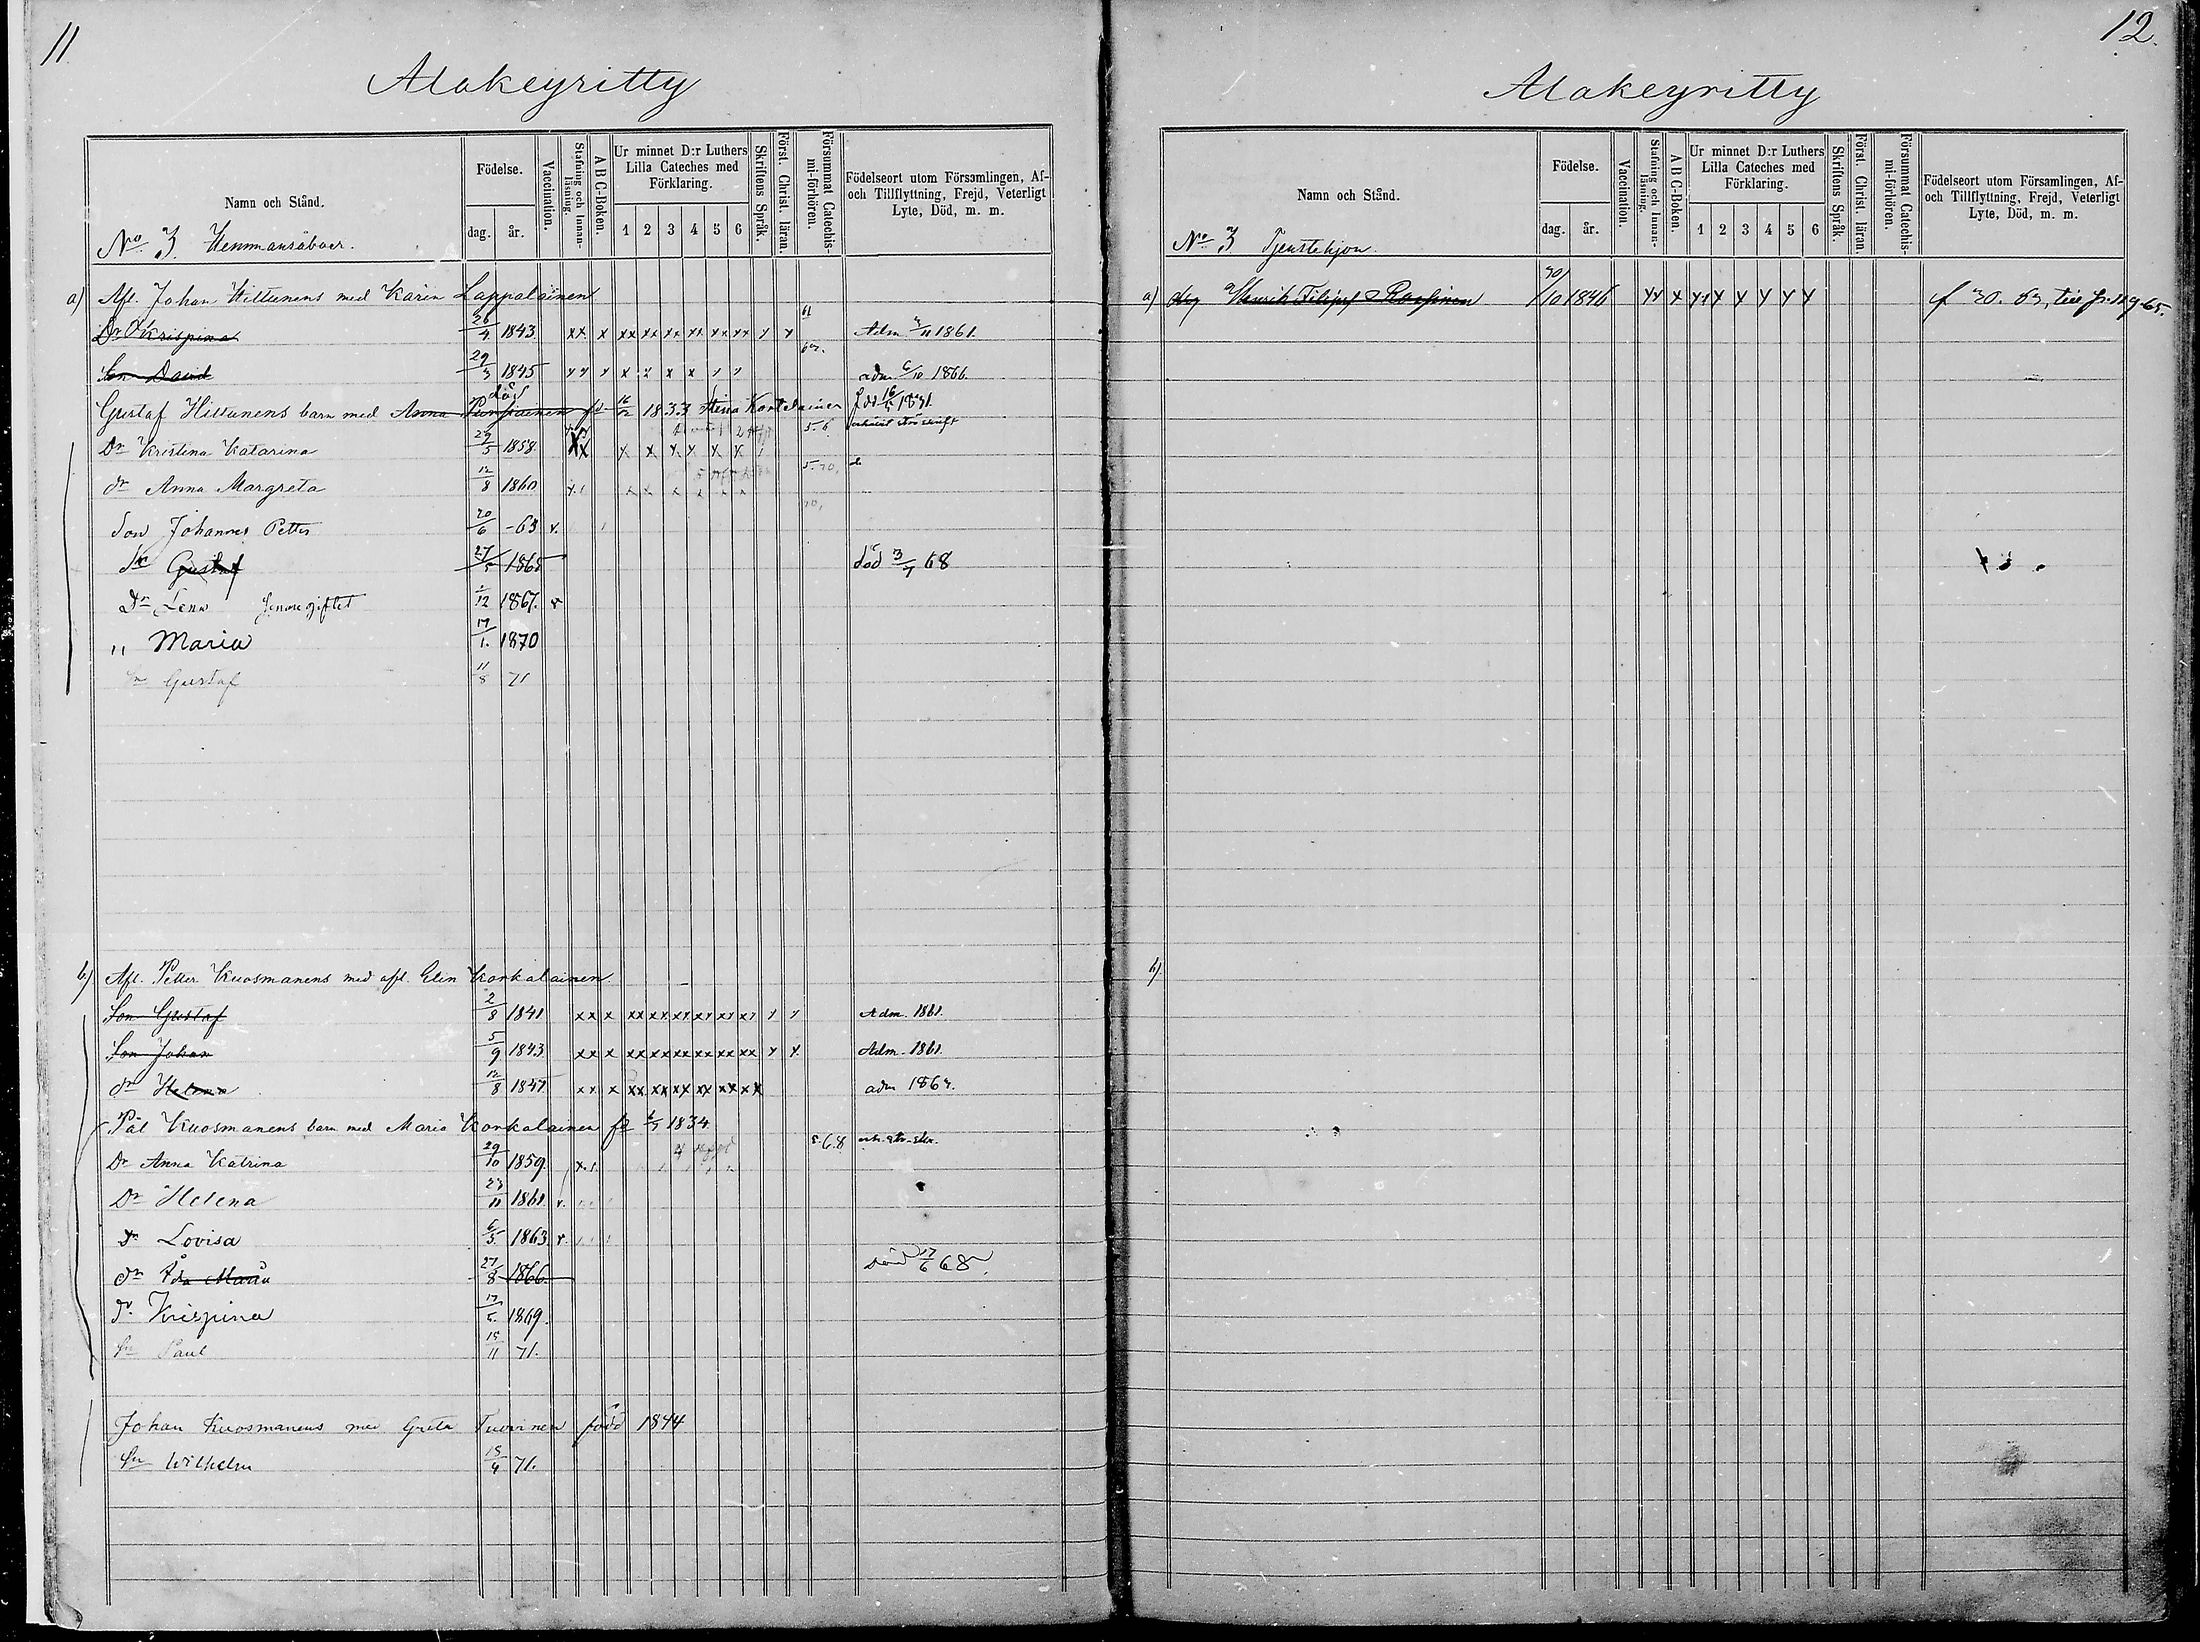 11
Alakeyritty
Namn och Stånd.
Födelse.
dag.
år.
Vaccination.
Stafning och Innan-läsning.
A B C-Boken.
Ur minnet D:r Luthers Lilla Cateches med Förklaring.
1 2 3 4 5 6
Skriftens Språk.
Först. Christ. läran.
Försummat Catechis-mi-förhören.
Födelseort utom Församlingen, Af- och Tillflyttning, Frejd, Veterligt Lyte, Död, m. m.
No 3. Hemmansåboer.
a) Afl. Johan Hiltunens med Karin Lappalainen
Dr Krispina 26/4 1843 xx x xx xx xx xx xx xx x x 61 Adm 1861.
Son David 29/3 1845 adm 6/10 1866.
Gustaf Hiltunens barn med Anna död fd 16/2 1833 Stina Kortelainen
Dr Kristina Katarina 5 1858
dr Anna Margreta 12/8 1860
Son Johannes Petter 20/6 -63 x
Sn Gustaf 27/5 1865 död 3/7 68
Dr Lena 1/12 1867. x
" Maria 17/1. 1870
Sn Gustaf 11/8 71
b) Afl. Petter Kuosmanens med afl. Elin Korkalainen
Son Gustaf 2/8 1841 xx x xx xx xx xx xx xx x x Adm. 1861.
Son Johan 5/9 1843 xx x xx xx xx xx xx xx x x Adm. 1861.
dr Helena 12/8 1847 xx x xx xx xx xx xx xx adm 1867.
Pål Kuosmanens barn med Maria Korkalainen fd 1834
Dr Anna Katrina 29/10 1859
Dr Helena 23/11 1861. x
Dr Lovisa 6/5 1863. x
dr Ida Maria 27/8 1866 död 17/6 68
Dr Krispina 17/5 1869.
Sn Paul 15/11 71.
Johan Kuosmanens med Greta Tuorinen född 1844
Sn Wilhelm 15/4 71.
12.
Alakeyritty
Namn och Stånd.
Födelse.
dag.
år.
Vaccination.
Stafning och Innan-läsning.
A B C-Boken.
Ur minnet D:r Luthers Lilla Cateches med Förklaring.
1 2 3 4 5 6
Skriftens Språk.
Först. Christ. läran.
Försummat Catechis-mi-förhören.
Födelseort utom Församlingen, Af- och Tillflyttning, Frejd, Veterligt Lyte, Död, m. m.
No 3 Tjenstehjon.
a) Henrik Filip 1846
b)